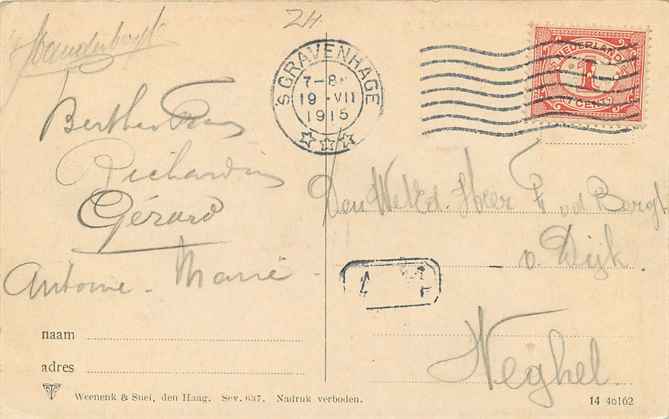 24
's GRAVENHAGE
7-8
19 .VII
1915
NEDERLAND
1
CENT
Richardin
Gérard
Antoine - Marie
Den Weled. Heer F. v.d. Bergt
v. Dijk.
Veghel.
naam
adres
Weenenk & Snel, den Haag. Sev. 637. Nadruk verboden.
14 40162